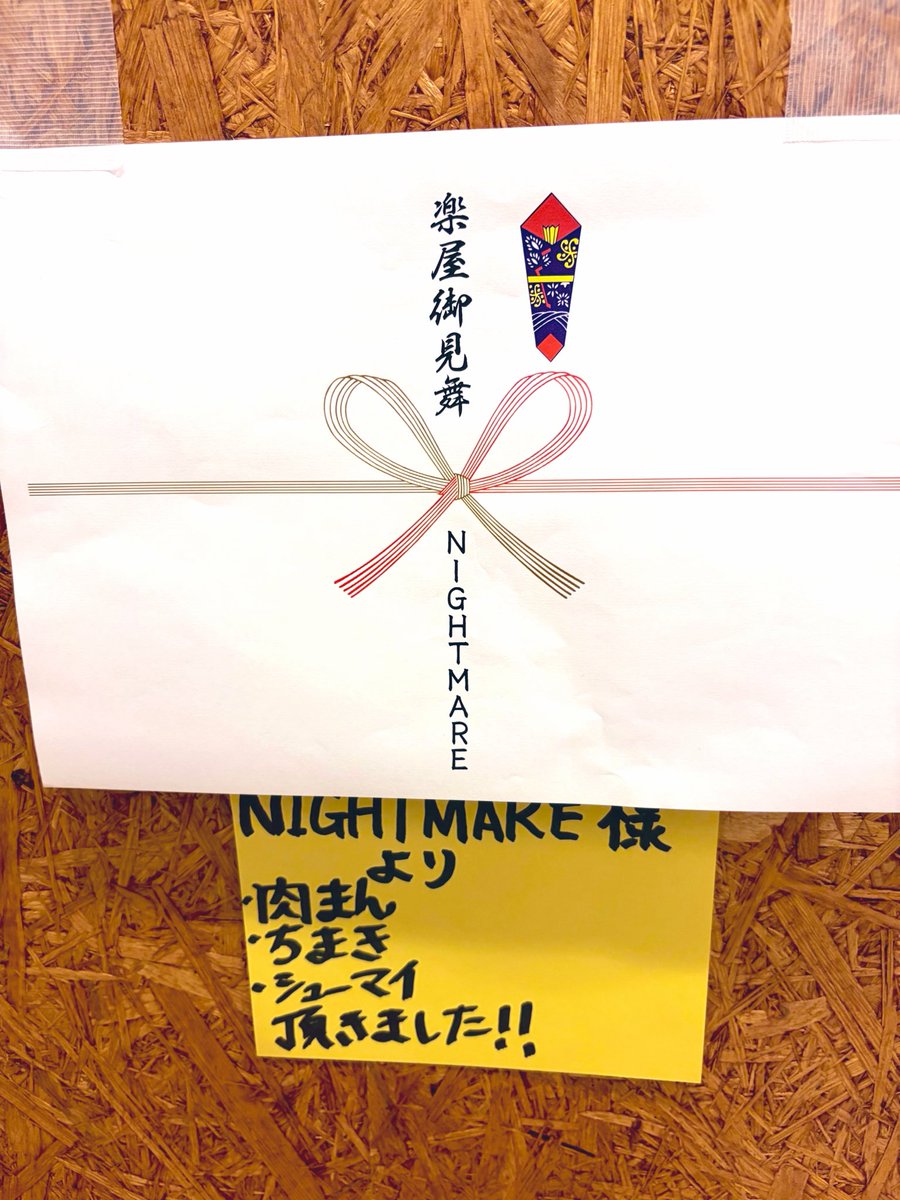 楽屋御見舞
NIGHTMARE
NIGHTMARE 様
より
・肉まん
・ちまき
・シューマイ
頂きました!!